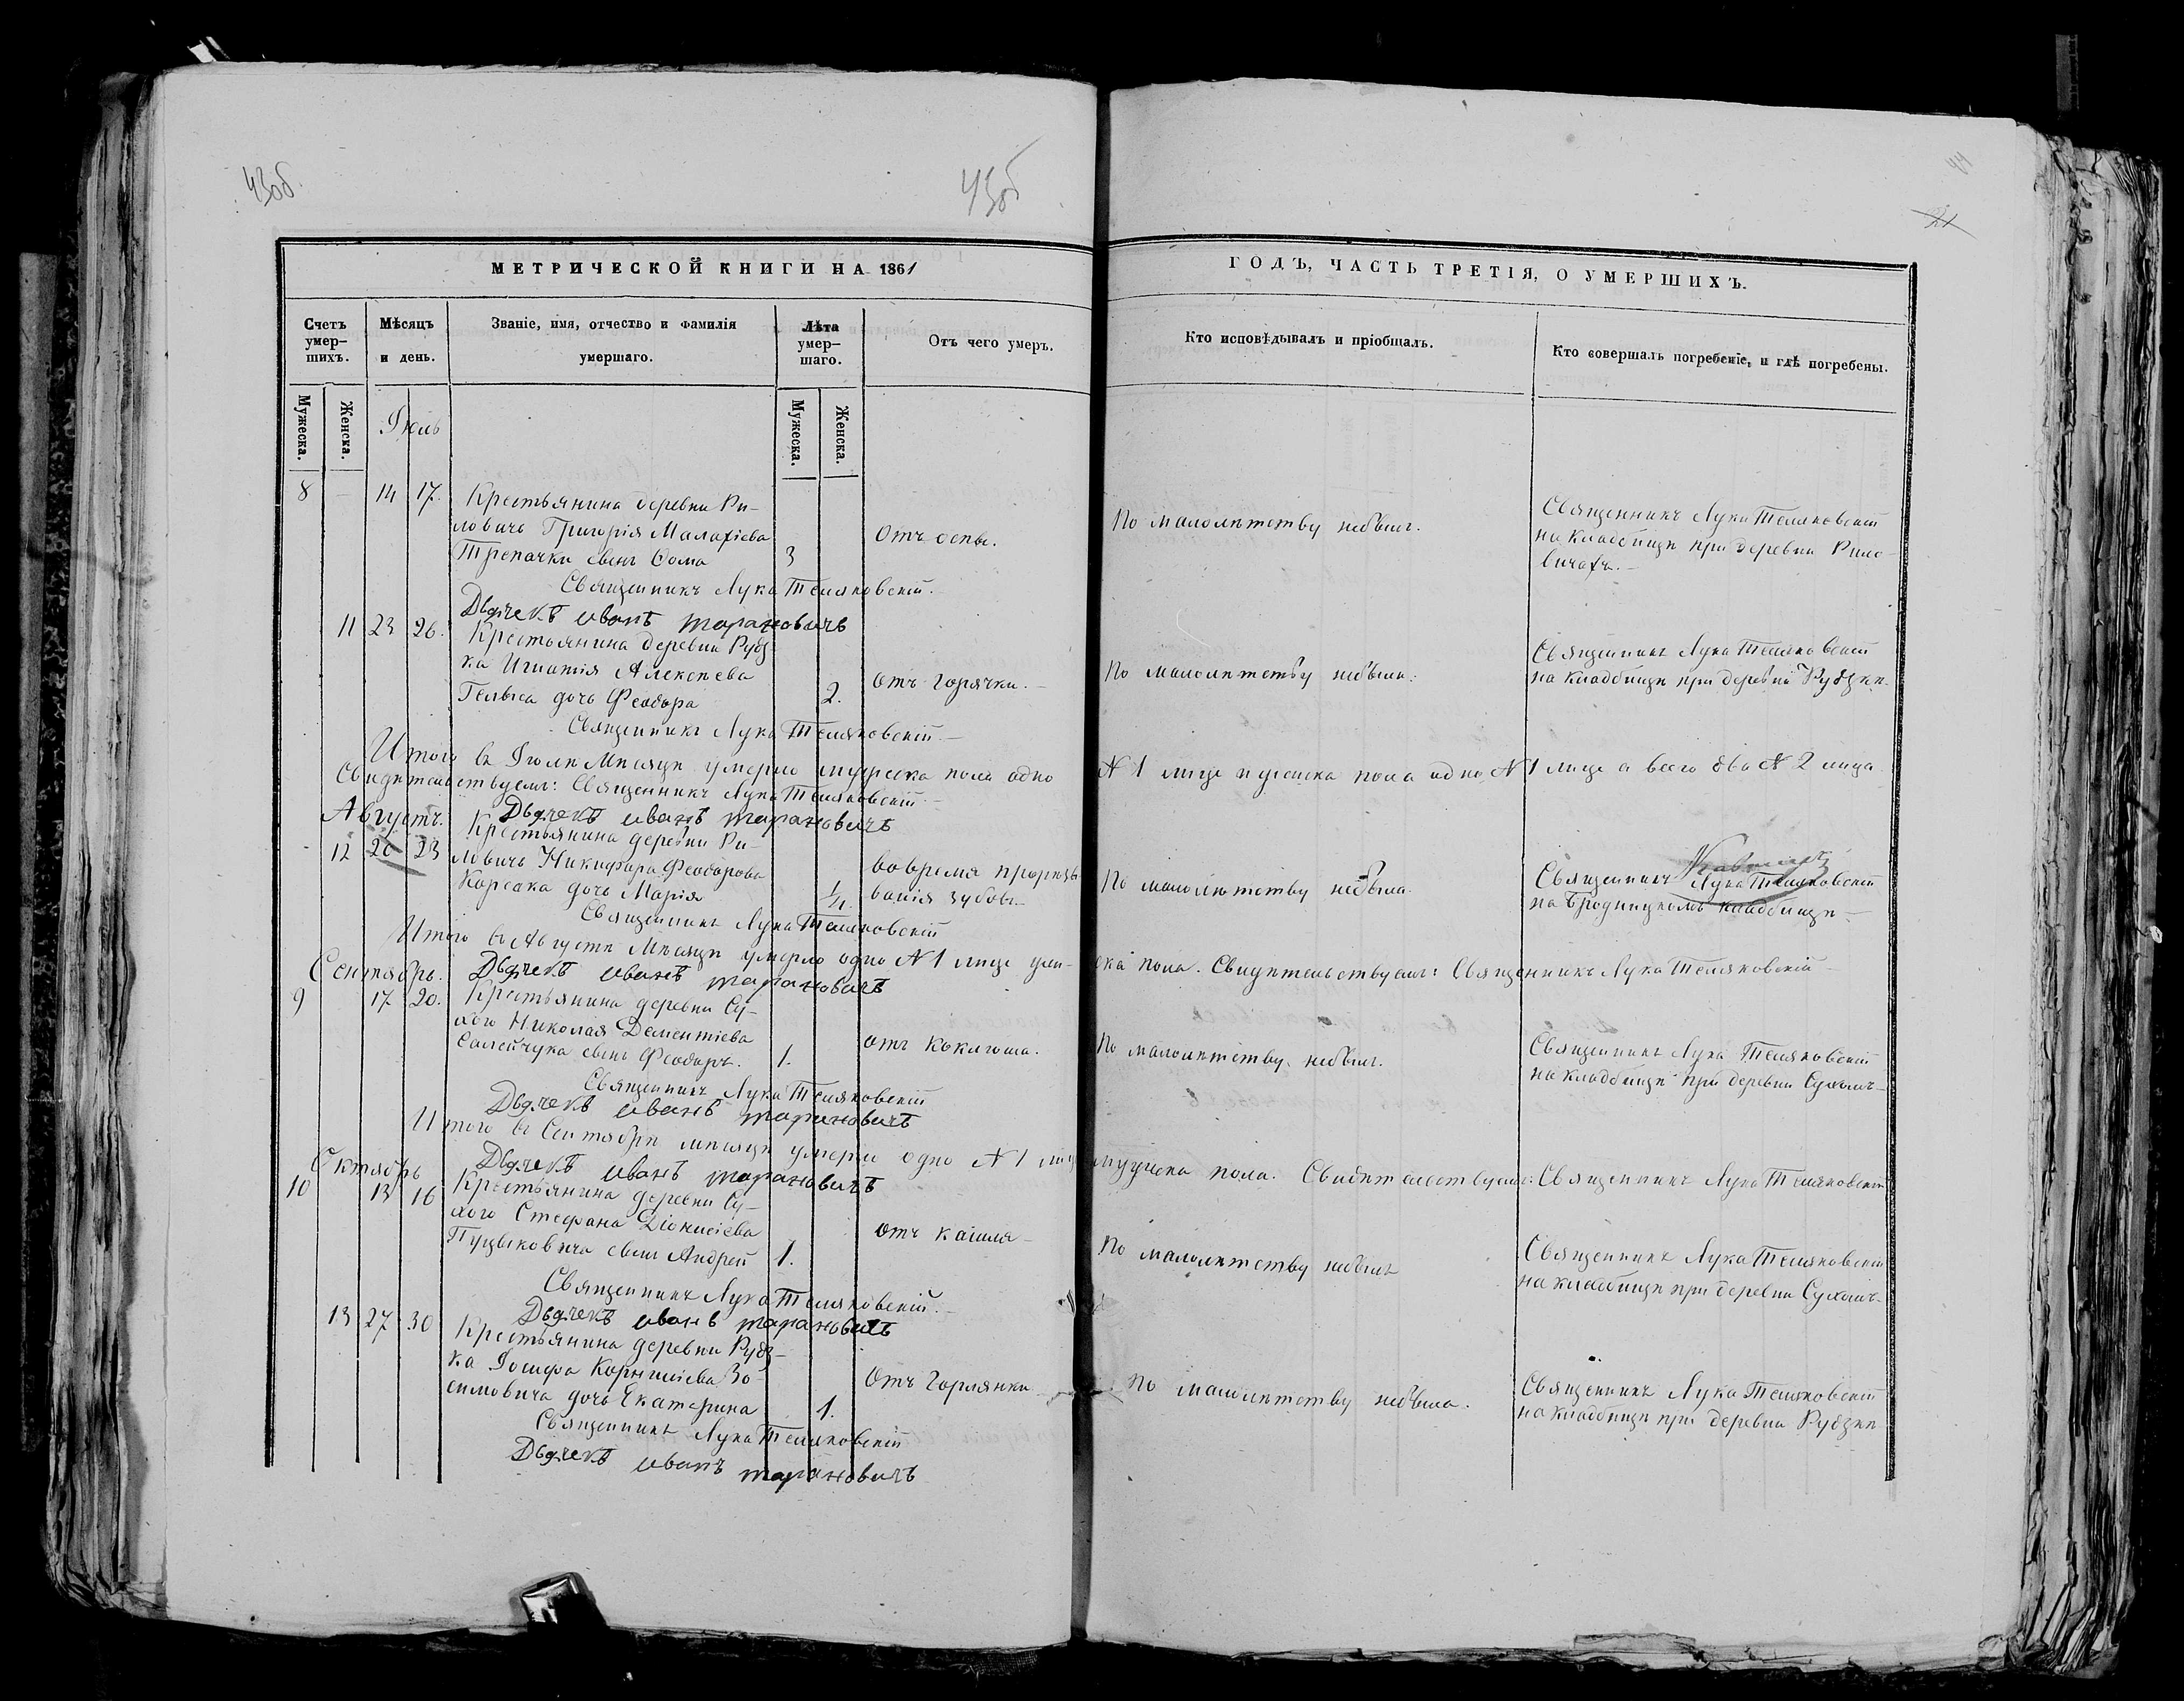 43об.
43об
44
21
МЕТРИЧЕСКОЙ КНИГИ НА 1861
ГОДЪ, ЧАСТЬ ТРЕТІЯ, О УМЕРШИХЪ.
Счетъ умер-шихъ.
Мѣсяцъ и день.
Званіе, имя, отчество и фамилія умершаго.
Лѣта умер-шаго.
Отъ чего умеръ.
Кто исповѣдывалъ и пріобщалъ.
Кто совершалъ погребеніе, и гдѣ погребены.
Мужеска.
Женска.
Мужеска.
Женска.
Іюль
8 14 17. Крестьянина деревни Ри-
ловичь Григорія Малахіева
Трепачки сынъ Ѳома 3
Отъ оспы.
По малолѣтству небылъ.
Священникъ Лука Теляковскій
на кладбищѣ при деревни Рило-
вичахъ.
Священникъ Лука Теляковскій.
Дьячекъ иванъ тарановичъ
11 23 26. Крестьянина деревни Рубз
ка Игнатія Алексѣева
дочь Феодора 2.
Отъ горячки.
По малолѣтству небыла.
Священникъ Лука Теляковскій
на кладбищѣ при деревни Рубзкѣ.
Священникъ Лука Теляковскій
Итого въ Іюлѣ Мѣсяцѣ умерло мужеска пола одно N 1 лице и женска пола одно N 1 лице а всего два N 2 лица
Свидѣтельствуемъ: Священникъ Лука Теляковскій
Дьячекъ иванъ тарановичъ
Августъ.
12 20 23 Крестьянина деревни Ри-
ловичь Никифора Феодорова
Корсака дочь Марія 1/4.
вовремя прорѣзы
ванія зубовъ
По малолѣтству небыла.
Священникъ Лука Теляковскій
на Бродницкомъ кладбищѣ.
Священникъ Лука Теляковскій
Итого въ Августѣ Мѣсяцѣ умерло одно N 1 лице жен-ска пола. Свидѣтельствуемъ: Священникъ Лука Теляковскій
Дьячекъ иванъ тарановичъ
Сентябрь.
9 17 20. Крестьянина деревни Су-
хого Николая Дементіева
Салейчука сынъ Феодоръ. 1.
отъ коклюша.
По малолѣтству небылъ.
Священникъ Лука Теляковскій
на кладбищѣ при деревни Сухомъ
Священникъ Лука Теляковскій
Дьячекъ иванъ тарановичъ
Итого въ Сентябрѣ мѣсяцѣ умерло одно N 1 лице мужеска пола. Свидѣтельствуемъ: Священникъ Лука Теляковскій
Дьячекъ иванъ тарановичъ
Октябрь
10 13 16 Крестьянина деревни Су-
хого Стефана Діонисіева
Пуцыковича сынъ Андрей 1.
отъ кашля
По малолѣтству небылъ
Священникъ Лука Теляковскій
на кладбищѣ при деревни Сухомъ
Священникъ Лука Теляковскій.
Дьячекъ иванъ тарановичъ
13 27 30 Крестьянина деревни Рубз-
ка Іосифа Корниліева Зо-
симовича дочь Екатерина 1.
Отъ Горлянки
По малолѣтству небыла.
Священникъ Лука Теляковскій
на кладбищѣ при деревни Рубзкѣ
Священникъ Лука Теляковскій
Дьячекъ иванъ тарановичъ